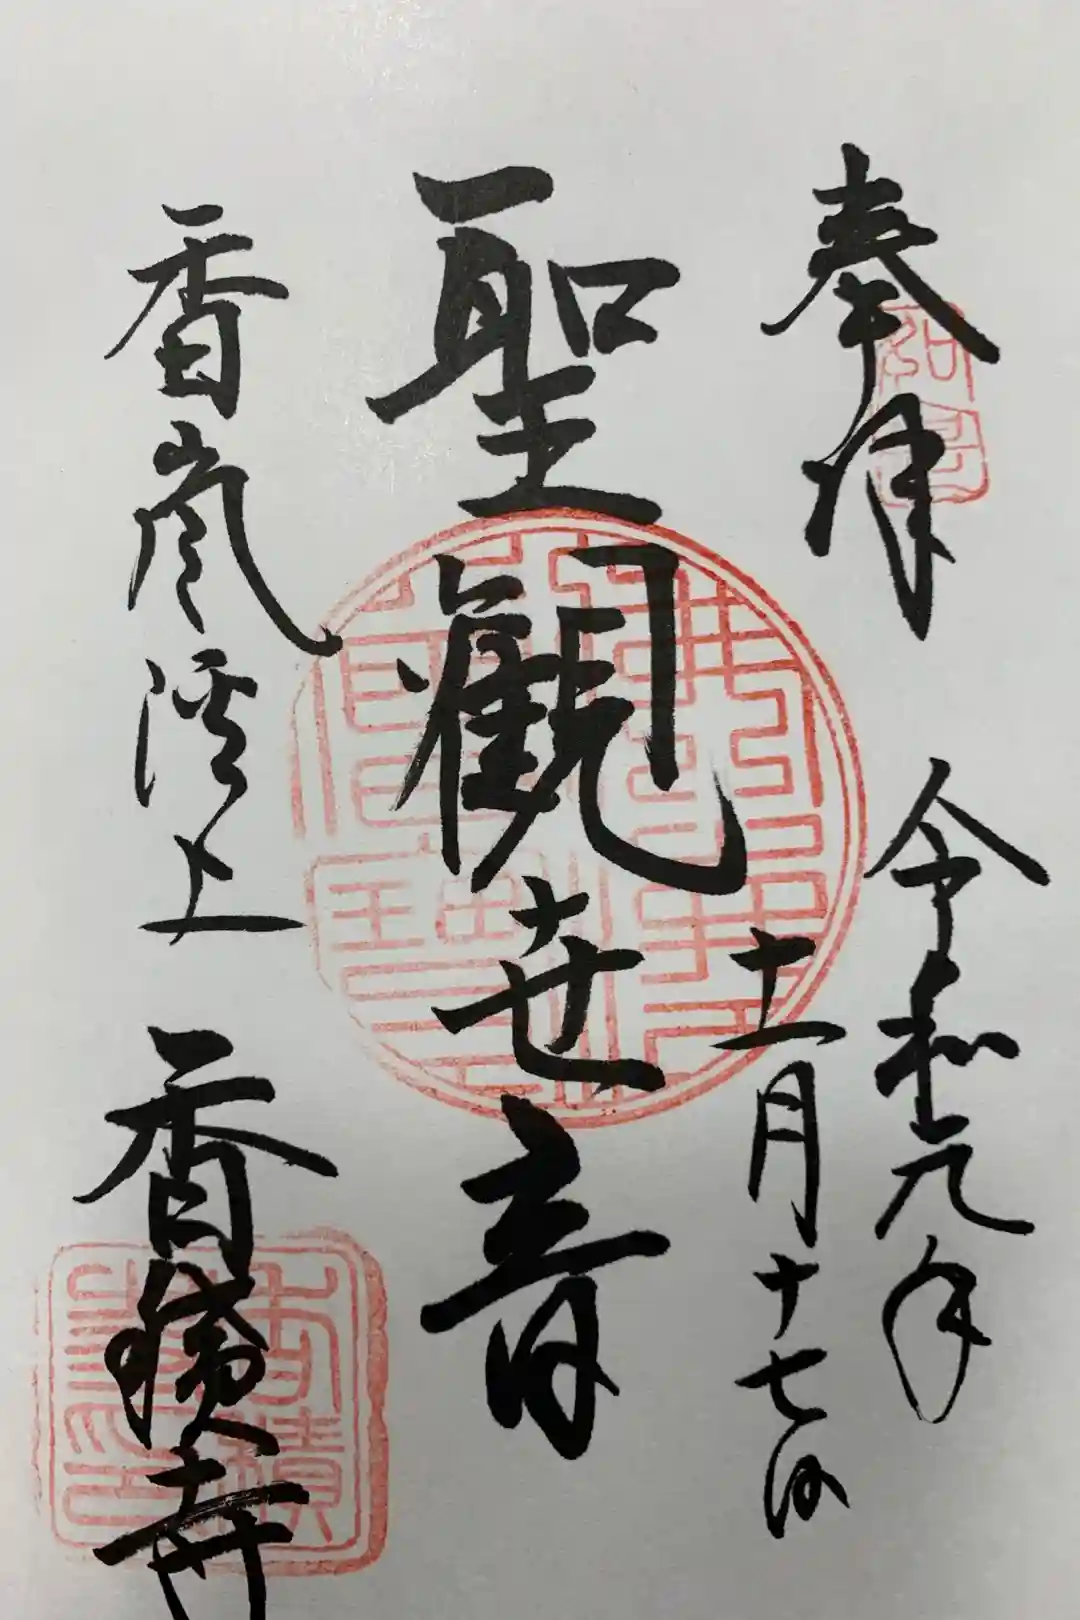 奉拝　令和元年
十一月十七日
聖觀世音
香嵐渓上　香積寺